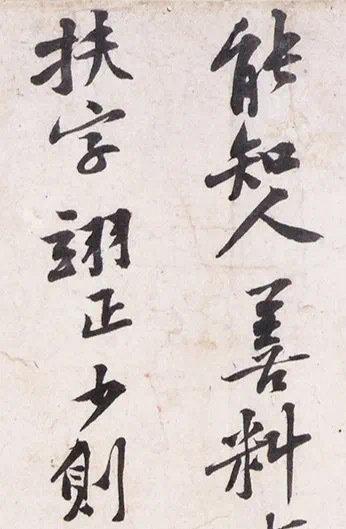 能知人善料
扶字翊正少則